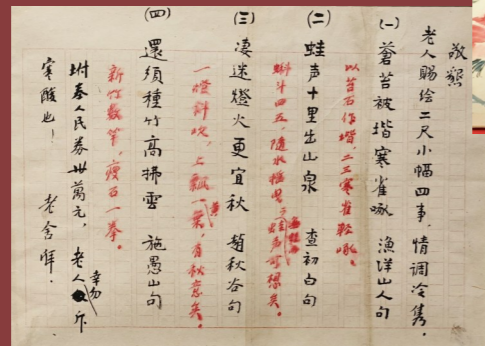 敬懇
老人賜绘二尺小幅四事，情调冷雋。
(一) 蒼苔被堦寒雀啄 漁洋山人句
以苔石作堦，二三寒雀輕啄。
(二) 蛙声十里出山泉 查初白句
蝌斗四五，隨水摇曳，無蛙而蛙声可想矣。
(三) 凄迷燈火更宜秋 趙秋谷句
一燈斜吹，上飄一黄葉，有秋意矣。
(四) 還須種竹高拂雲 施愚山句
新竹数竿，瘦石一拳。
坿奉人民券卅萬元，老人幸勿斥
寒酸也！ 老舍拜．